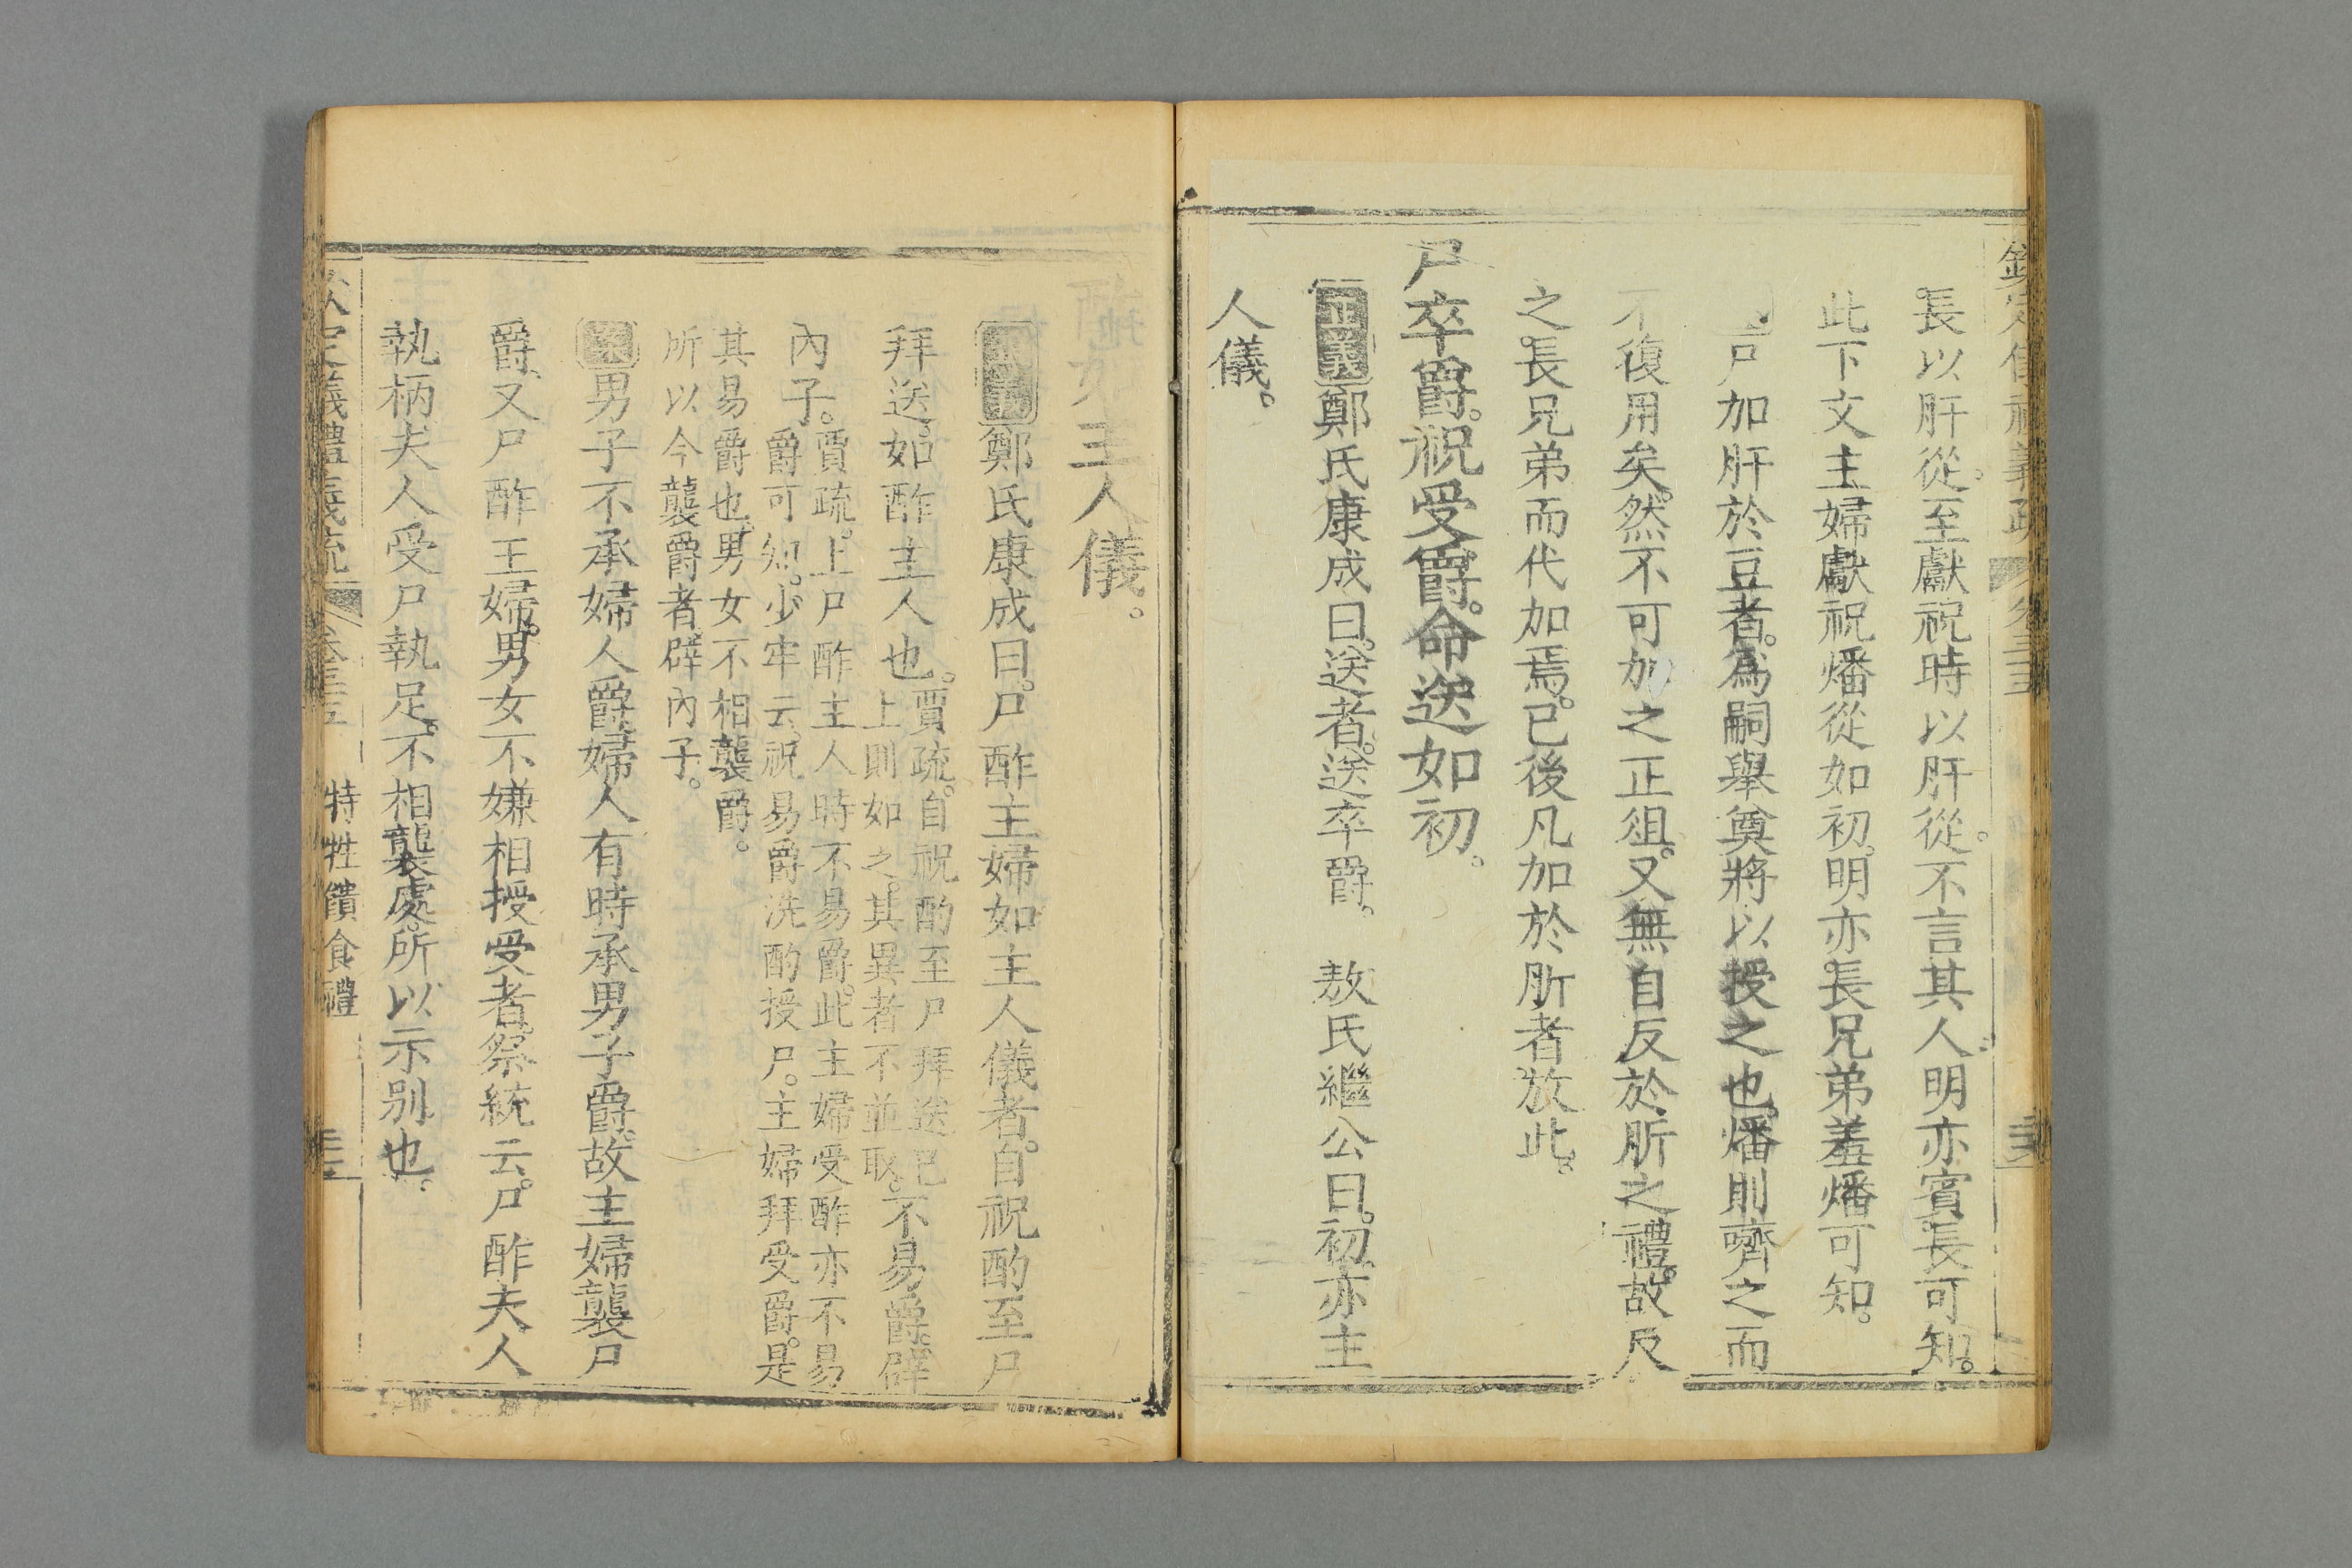 長以肝從。至獻祝時以肝從。不言其人。明亦賓長可知。
此下文主婦獻祝燔從如初。明亦長兄弟羞燔可知。
尸加肝於豆者。為嗣舉奠將以授之也。燔則嚌之而
不復用矣。然不可加之正俎。又無自反於肵之禮。故反
之。長兄弟而代加焉。已後凡加於肵者放此。
尸卒爵。祝受爵。命送如初。
正義鄭氏康成曰。送者。送卒爵。 敖氏繼公曰。初。亦主
人儀。
主人儀。
正義鄭氏康成曰。尸酢主婦如主人儀者。自祝酌至尸
拜送。如酢主人也。賈疏。自祝酌至尸拜送已上則如之。其異者不並取。不易爵。辟
內子。賈疏。上尸酢主人時不易爵。此主婦受酢亦不易爵可知。少牢云。祝易爵洗酌授尸。主婦拜受爵。是
其易爵也。男女不相襲爵。
所以今襲爵者辟內子。
案男子不承婦人爵。婦人有時承男子爵。故主婦襲尸
爵。又尸酢主婦。男女不嫌相授受者。祭統云。尸酢夫人
執柄。夫人受尸執足。不相襲處。所以示別也。
欽定儀禮義疏 卷三十五 特牲饋食禮